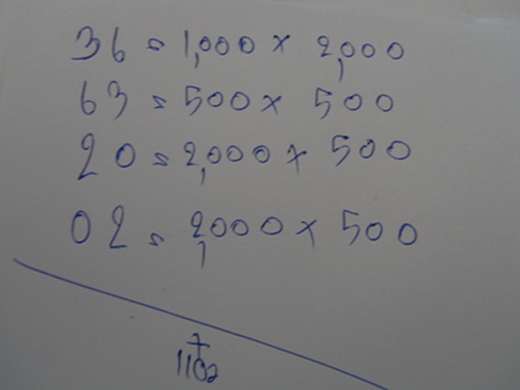 36 = 1,000 x 2,000
63 = 500 x 500
20 = 2,000 x 500
02 = 2,000 x 500